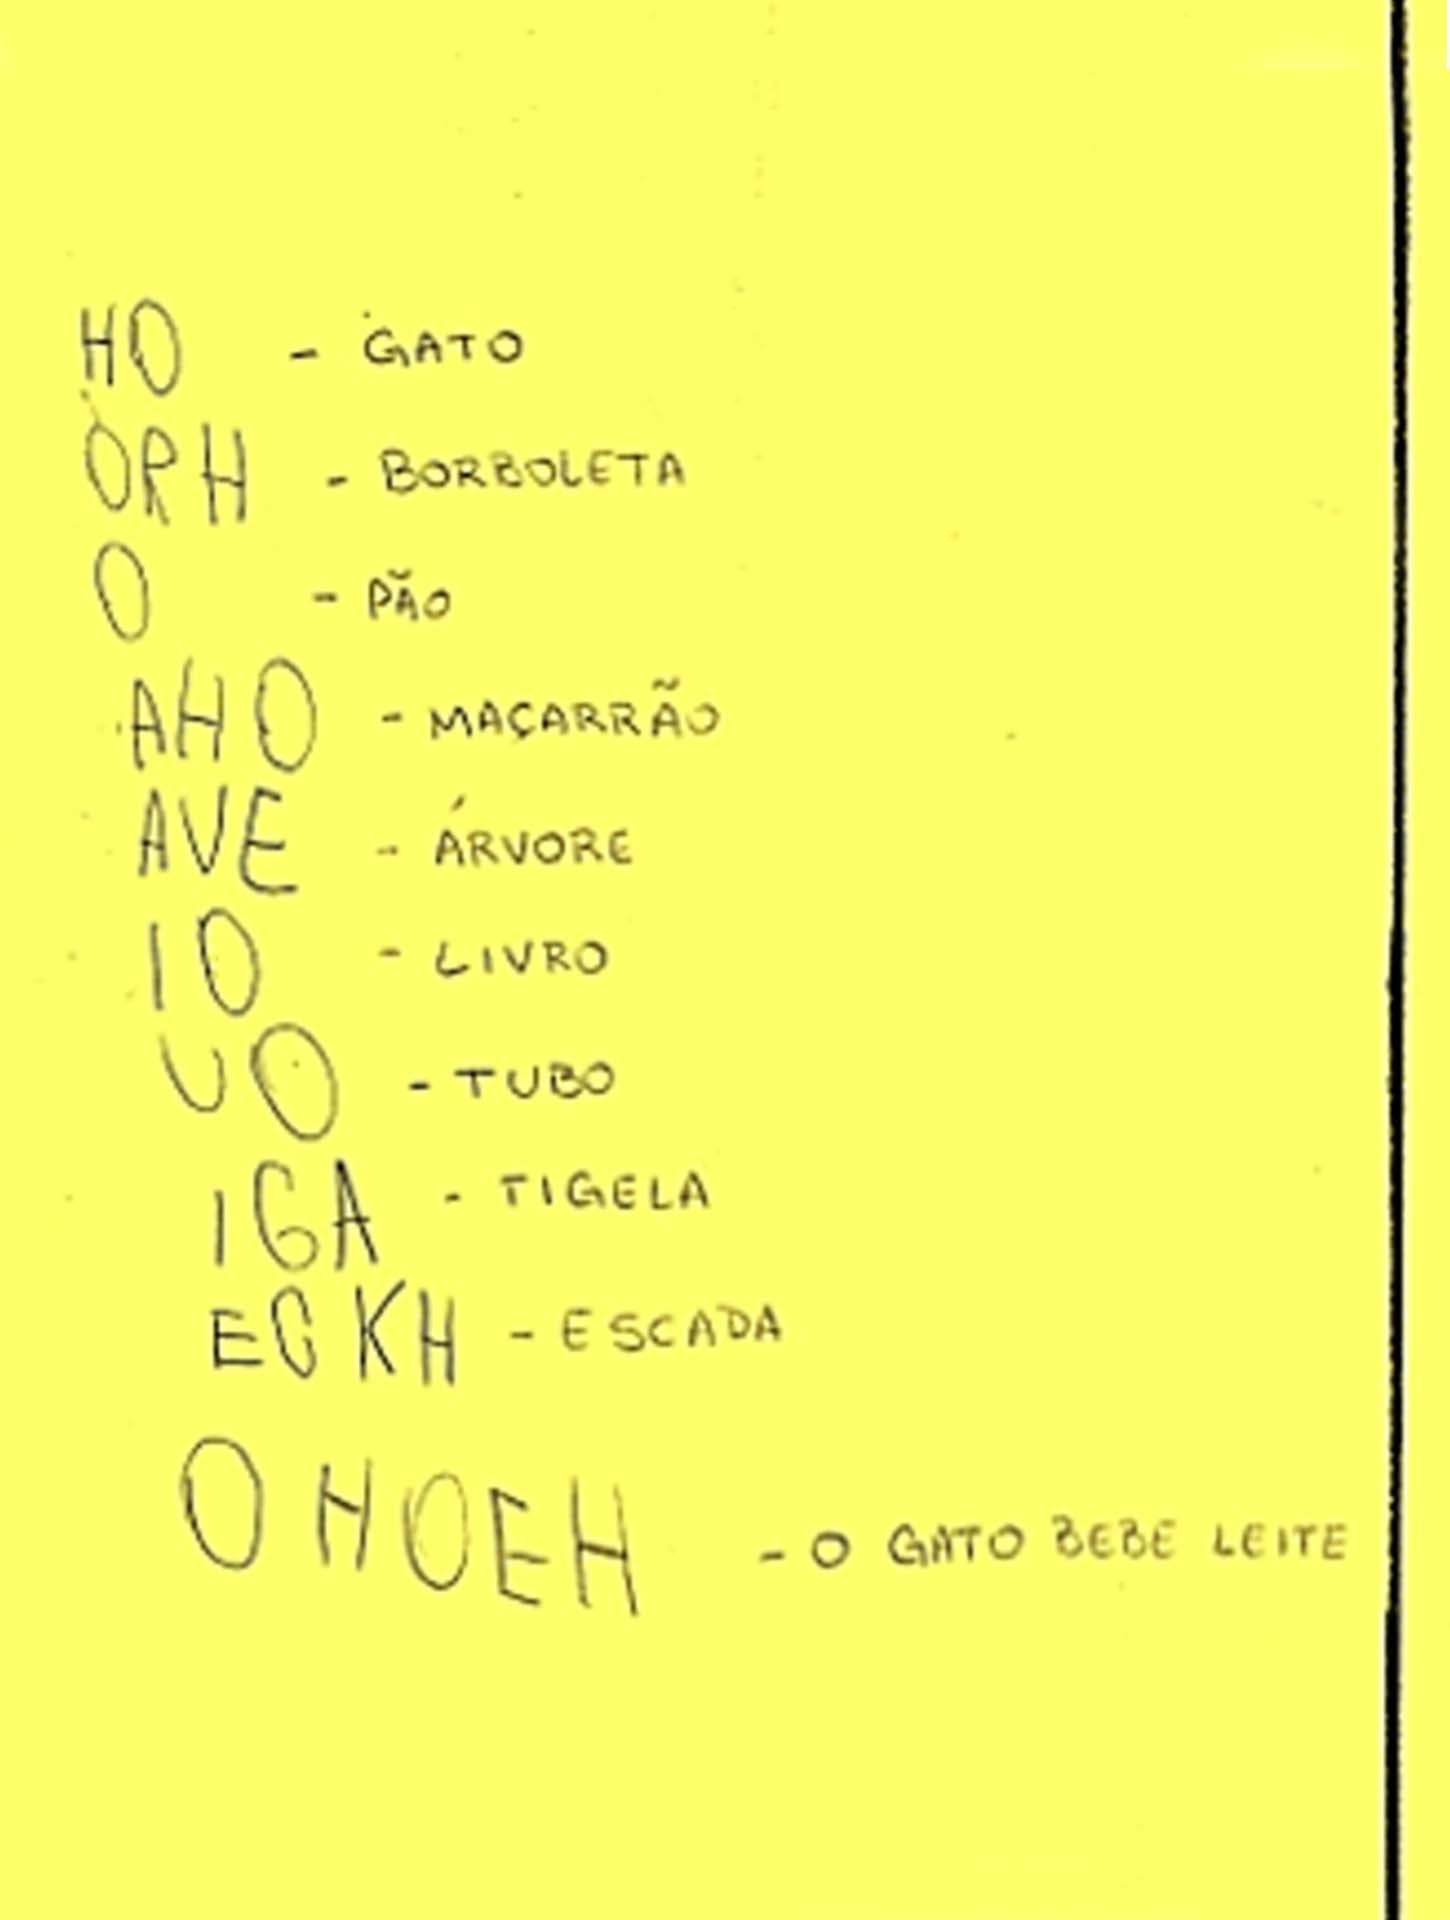 HO - GATO
ORH - BORBOLETA
O - PÃO
AHO - MAÇARRÃO
AVE - ÁRVORE
IO - LIVRO
UO - TUBO
IGA - TIGELA
ECKH - ESCADA
O HOEH - O GATO BEBE LEITE